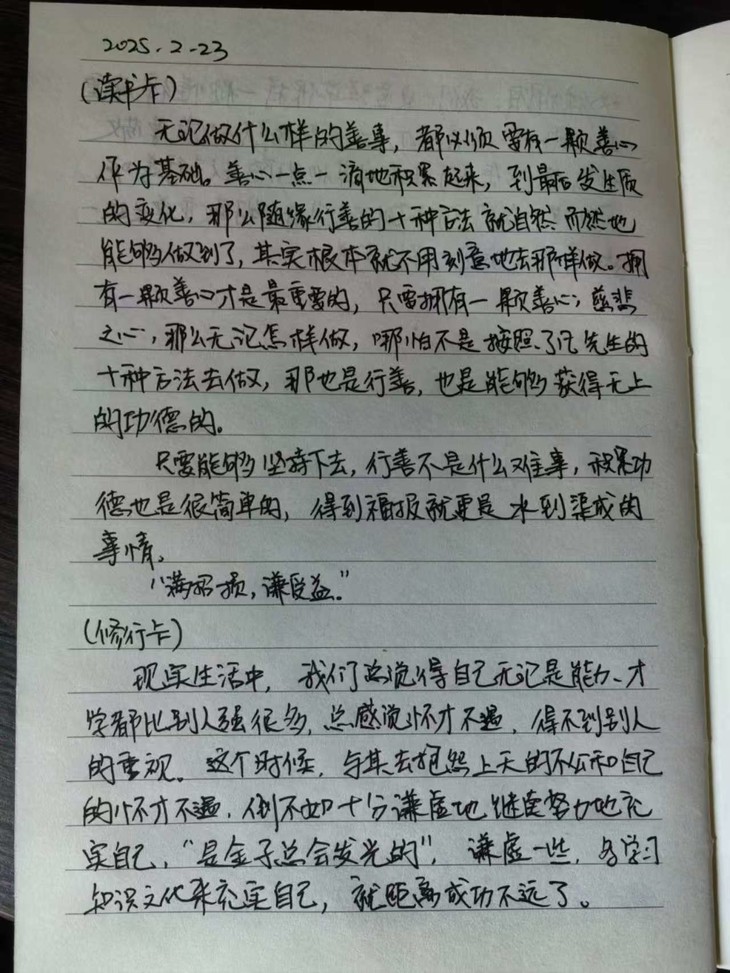 2025.2.23
(读书卡)
无论做什么样的善事，都必须要有一颗善心
作为基础。善心一点一滴地积累起来，到最后发生质
的变化，那么随缘行善的十种方法就自然而然地
能够做到了，其实根本就不用刻意地去那样做。拥
有一颗善心才是最重要的，只要拥有一颗善心，慈悲
之心，那么无论怎样做，哪怕不是按照了凡先生的
十种方法去做，那也是行善，也是能够获得无上
的功德的。
只要能够坚持下去，行善不是什么难事，积累功
德也是很简单的，得到福报就更是水到渠成的
事情。
"满招损，谦受益。"
(修行卡)
现实生活中，我们总觉得自己无论是能力、才
学都比别人强很多，总感觉怀才不遇，得不到别人
的重视。这个时候，与其去抱怨上天的不公和自己
的怀才不遇，倒不如十分谦虚地继续努力地充
实自己，"是金子总会发光的"，谦虚一些，多学习
知识文化来充实自己，就距离成功不远了。